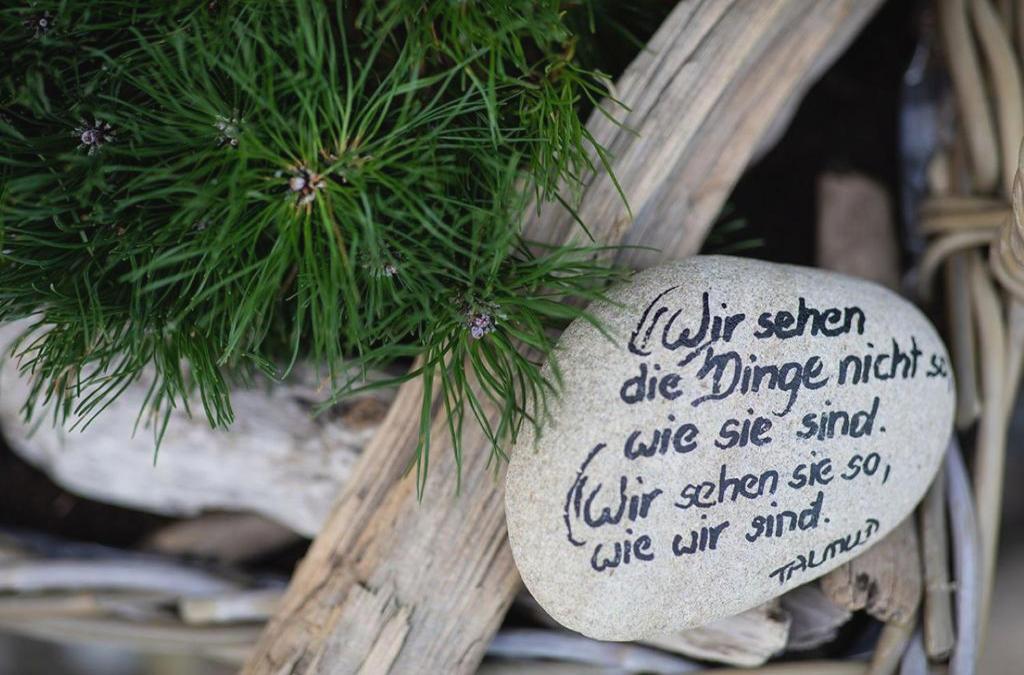 Wir sehen
die Dinge nicht so,
wie sie sind.
Wir sehen sie so,
wie wir sind.
TALMUD